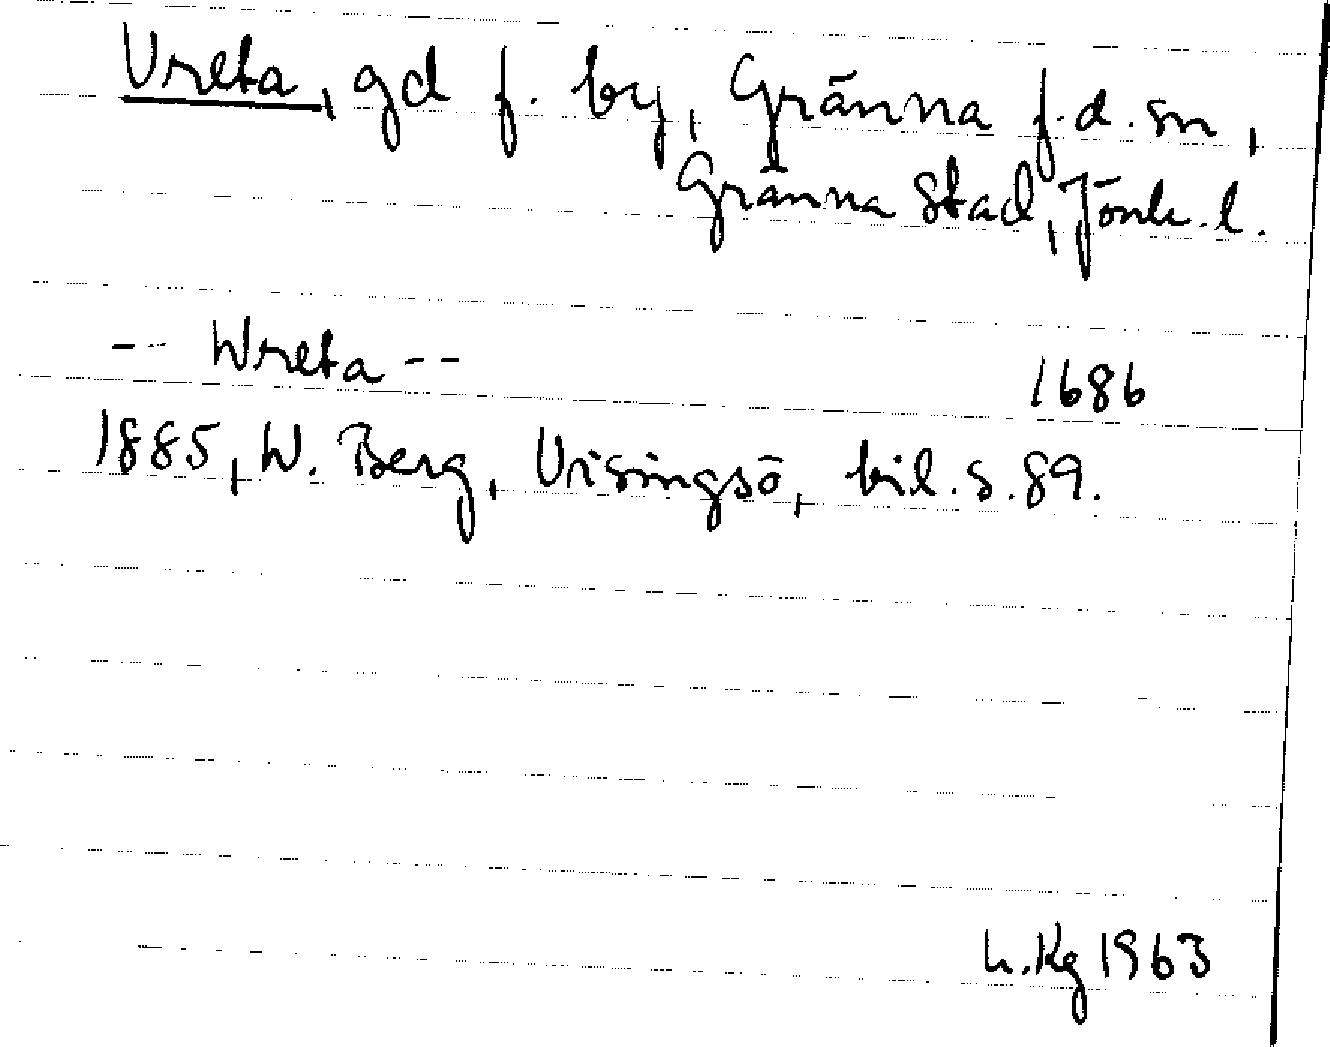 Vreta, gd f. by, Gränna f.d. sn,
Gränna stad, Jönk. l.
-- Wreta --   1686
1885, W. Berg, Visingsö, bil. s. 89.
h. Kg 1963